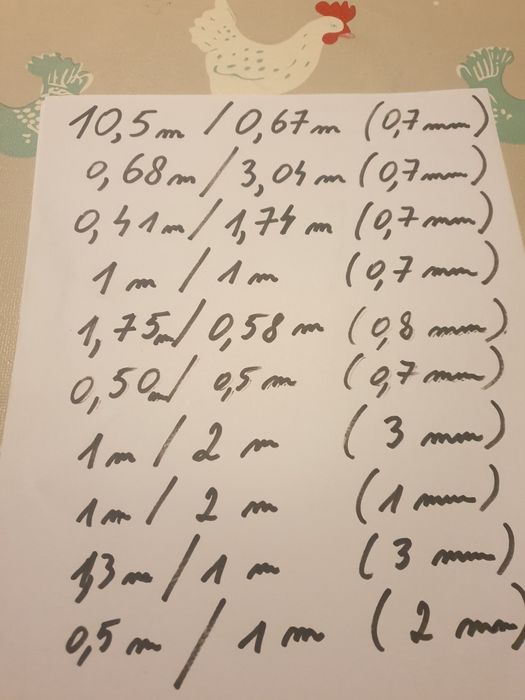 10,5m / 0,67m (0,7mm)
0,68m / 3,04m (0,7mm)
0,41m / 1,74m (0,7mm)
1m / 1m (0,7mm)
1,75m / 0,58m (0,8mm)
0,50m / 0,5m (0,7mm)
1m / 2m (3mm)
1m / 2m (1mm)
1,3m / 1m (3mm)
0,5m / 1m (2mm)